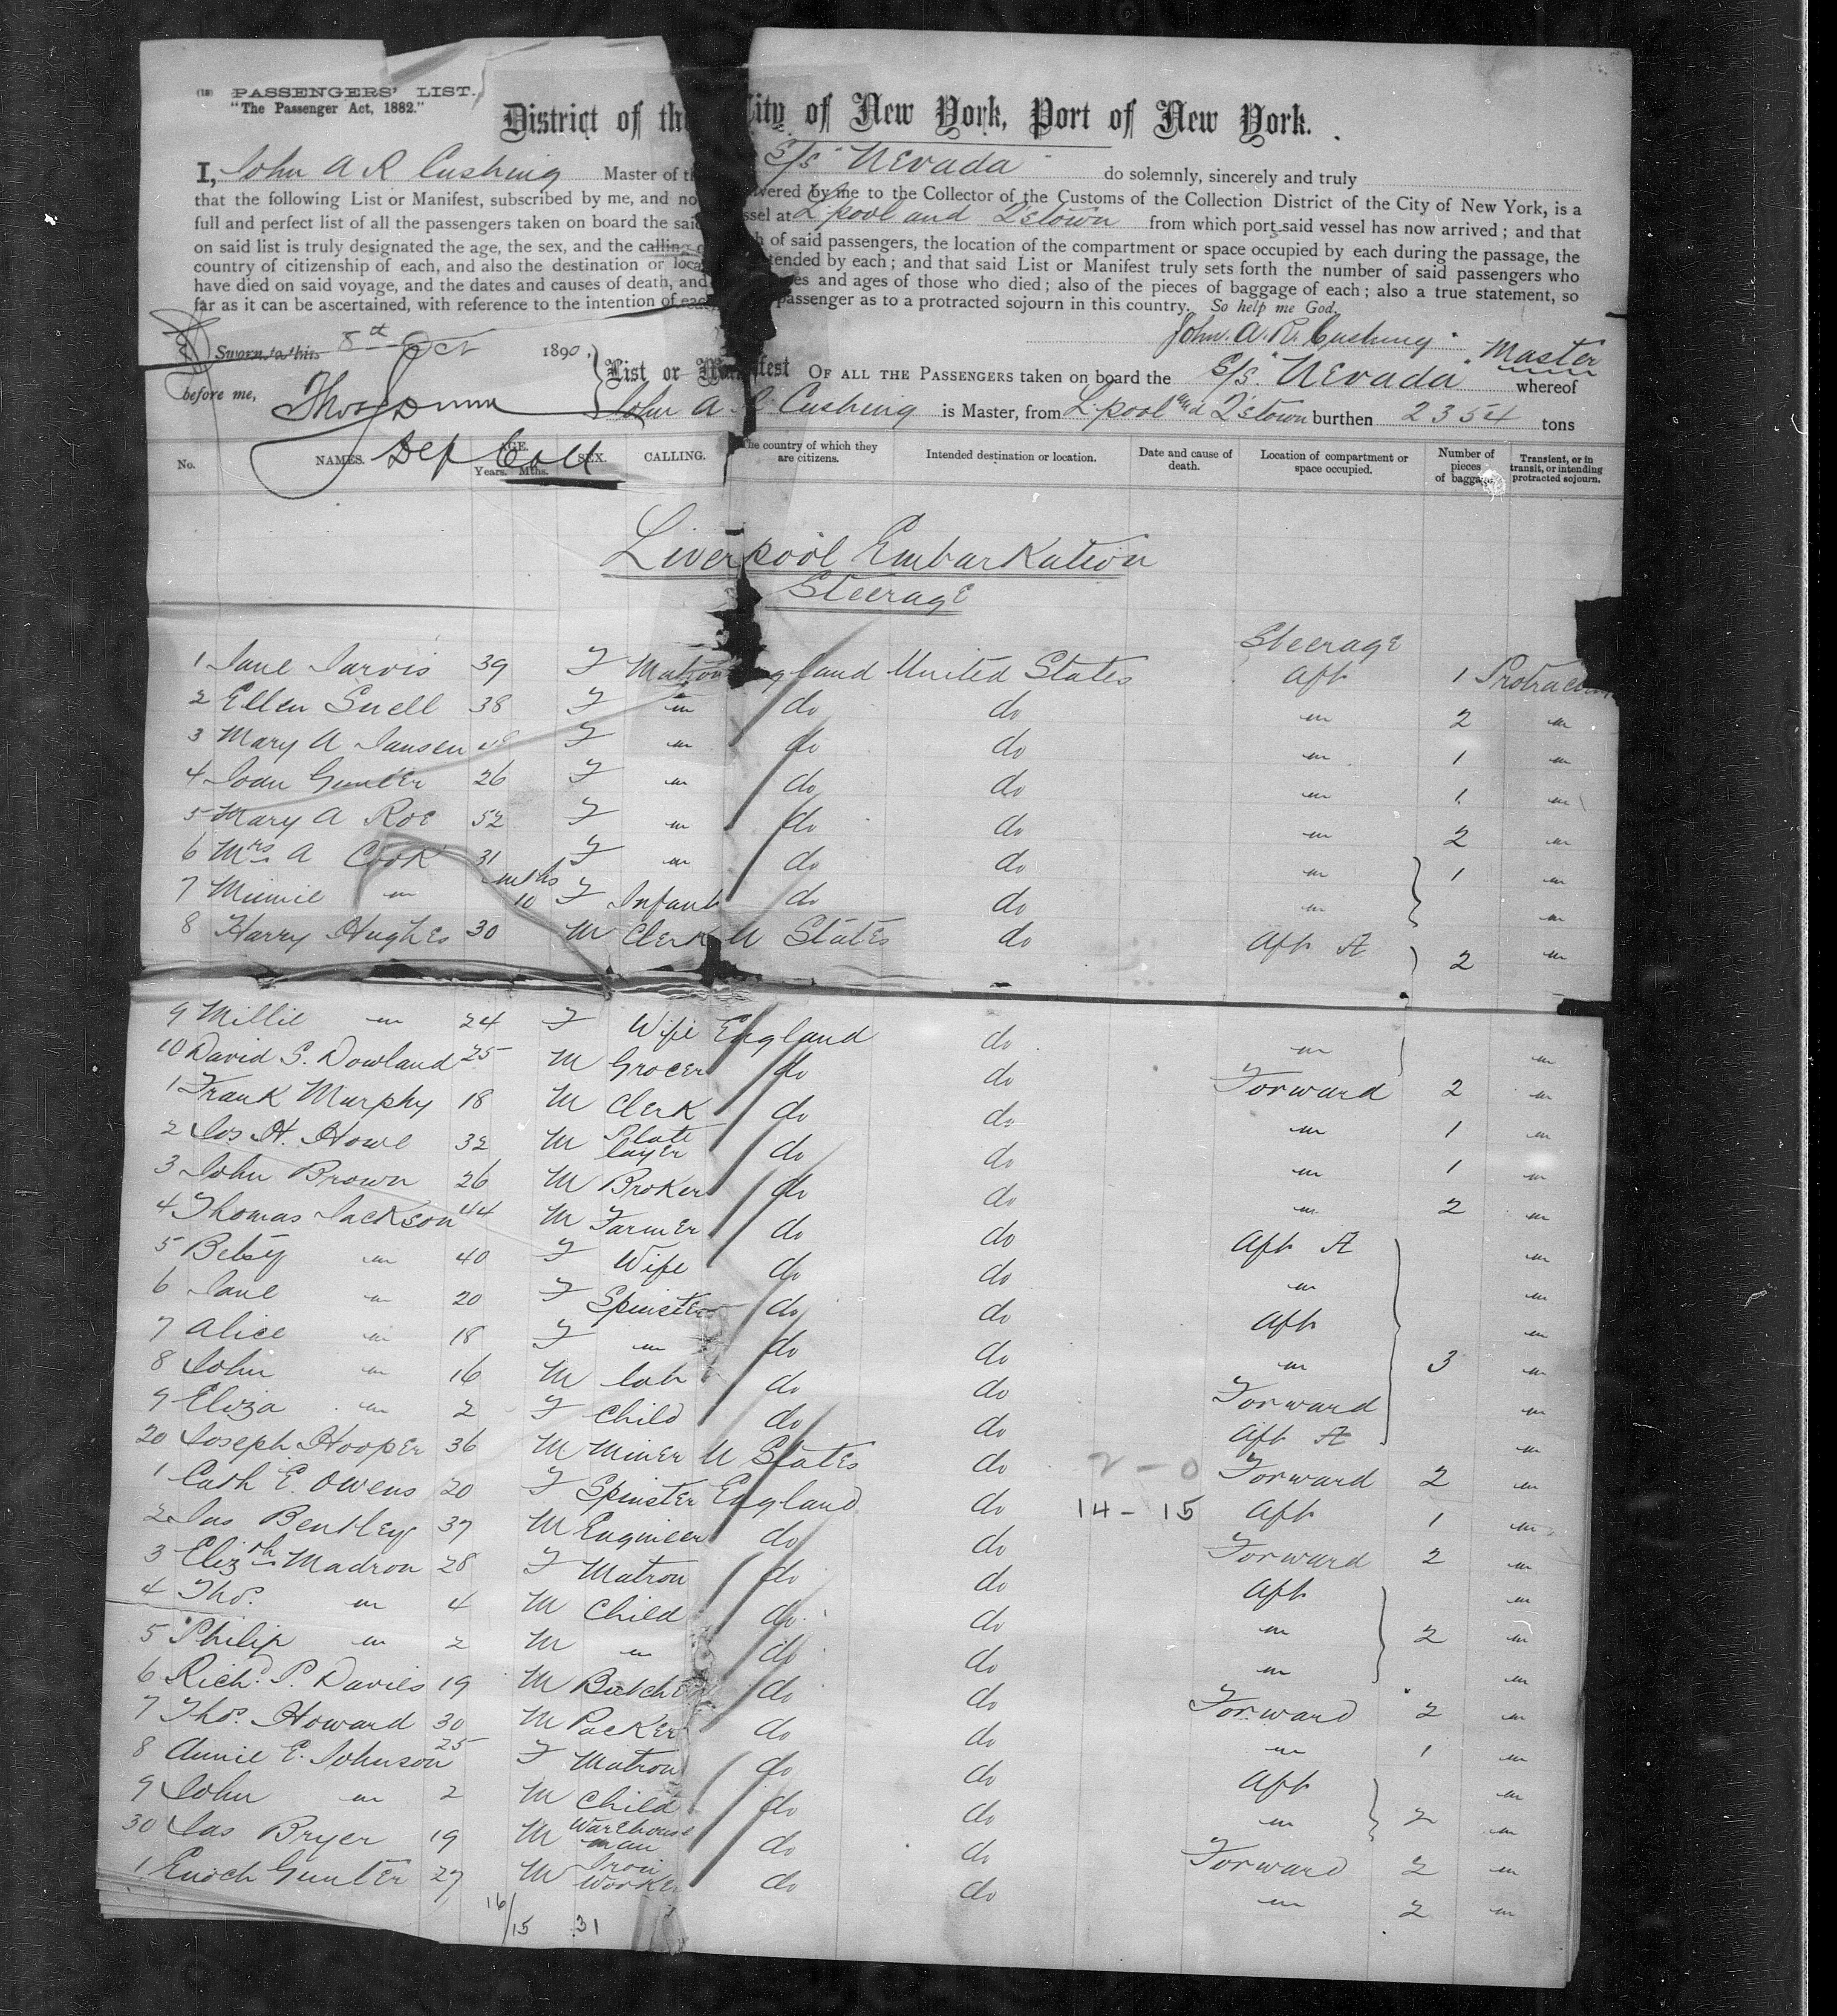 (18) PASSENGERS' LIST.
"The Passenger Act, 1882."
District of the City of New York, Port of New York.
I, John A R Cushing Master of th S/S "Nevada" do solemnly, sincerely and truly
that the following List or Manifest, subscribed by me, and no vered by me to the Collector of the Customs of the Collection District of the City of New York, is a
full and perfect list of all the passengers taken on board the said ssel at L'pool and Q'stown from which port said vessel has now arrived; and that
on said list is truly designated the age, the sex, and the calling o h of said passengers, the location of the compartment or space occupied by each during the passage, the
country of citizenship of each, and also the destination or loca tended by each; and that said List or Manifest truly sets forth the number of said passengers who
have died on said voyage, and the dates and causes of death, and es and ages of those who died; also of the pieces of baggage of each; also a true statement, so
far as it can be ascertained, with reference to the intention of each passenger as to a protracted sojourn in this country. So help me God.
John. A. R. Cushing Master
Sworn to this 8th Oct 1890,
before me,
Dep Coll
List or Manifest OF ALL THE PASSENGERS taken on board the S/S "Nevada" whereof
John A R Cushing is Master, from L'pool and Q'stown burthen 2354 tons
No. NAMES. AGE. Years. Mths. SEX. CALLING. The country of which they are citizens. Intended destination or location. Date and cause of death. Location of compartment or space occupied. Number of pieces of baggage. Transient, or in transit, or intending protracted sojourn.
Liverpool Embarkation
Steerage
Steerage
1 Jane Jarvis 39 F Matron England United States Aft 1
2 Ellen Snell 38 F " do do " 2 "
3 Mary A Jansen F " do do " 1 "
4 Joan Gunter 26 F " do do " 1 "
5 Mary A Roe 52 F " do do " 2 "
6 Mrs A Cook 31 F " do do " 1 "
7 Minnie " mths 10 F Infant do do " "
8 Harry Hughes 30 M Clerk U States do Aft A 2 "
9 Millie " 24 F Wife England do " "
10 David S. Dowland 25 M Grocer do do Forward 2 "
1 Frank Murphy 18 M Clerk do do " 1 "
2 Jos H. Howe 32 M Plate layer do do " 1 "
3 John Brown 26 M Broker do do " 2 "
4 Thomas Jackson 44 M Farmer do do Aft A "
5 Betsy " 40 F Wife do do " "
6 Jane " 20 F Spinster do do Aft "
7 Alice " 18 F " do do " 3 "
8 John " 16 M Lab do do Forward "
9 Eliza " 2 F Child do do Aft A "
20 Joseph Hooper 36 M Miner U States do 2-0 Forward 2 "
1 Cath E. Owens 20 F Spinster England do 14-15 Aft 1 "
2 Jas Bentley 37 M Engineer do do Forward 2 "
3 Elizth Madron 28 F Matron do do Aft "
4 Thos. " 4 M Child do do " 2 "
5 Philip " 2 M " do do " "
6 Richd. P. Davies 19 M Butcher do do Forward 2 "
7 Thos. Howard 30 M Packer do do " 1 "
8 Annie E. Johnson 25 F Matron do do Aft "
9 John " 2 M Child do do " 2 "
30 Jas Bryer 19 M Warehouse man do do Forward 2 "
1 Enoch Gunter 27 M Iron Worker do do " 2 "
16/15 31